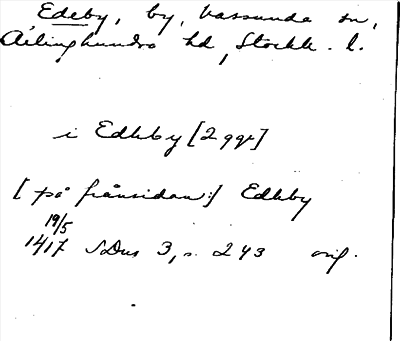 Edeby, by, Vassunda sn,
Ärlinghundra hd, Stockh. l.
i Edhby [2 ggr]
[på frånsidan:] Edhby
19/5
1417 SDns 3, s. 243 orig.